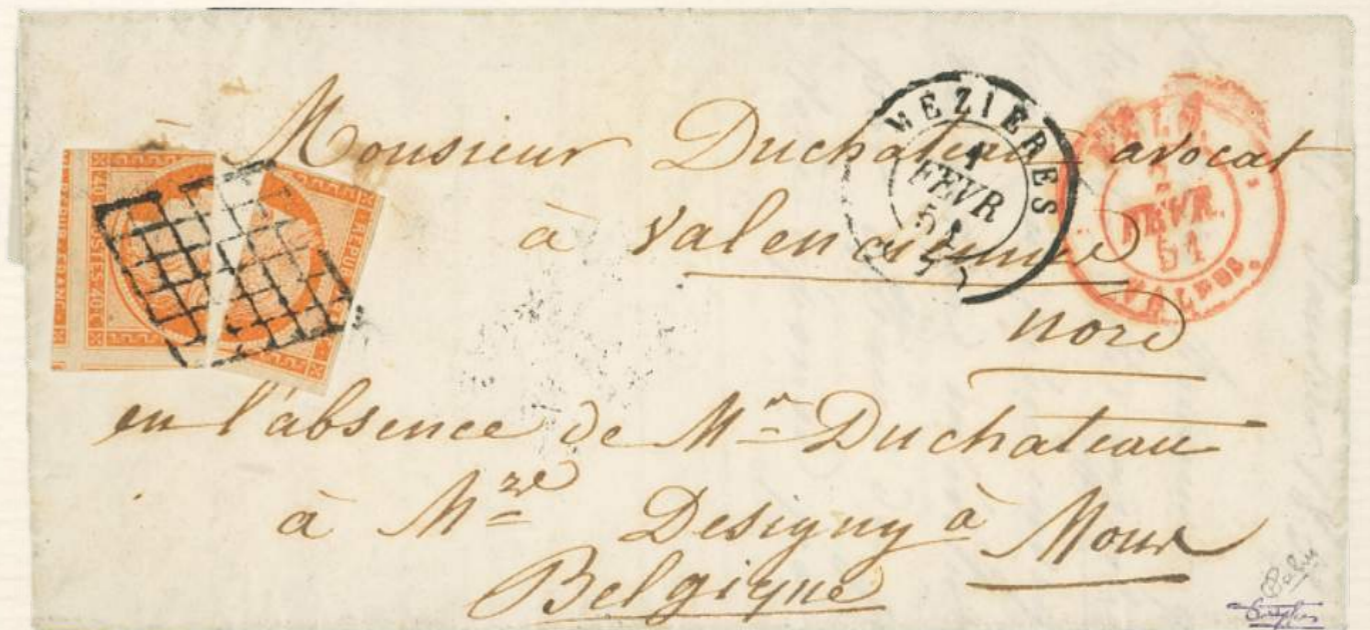 Monsieur Duchateau avocat
à Valenciennes
nord
en l'absence de Mr Duchateau
à Mre Designy à Mons
Belgique
MÉZIÈRES
1
FEVR
51
2
FEVR.
51
REPUB
40 POSTES 40